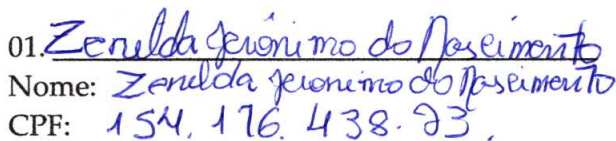 01. Zenilda Jerônimo do Nascimento
Nome: Zenilda Jeronimo do Nascimento
CPF: 154.176.438.93